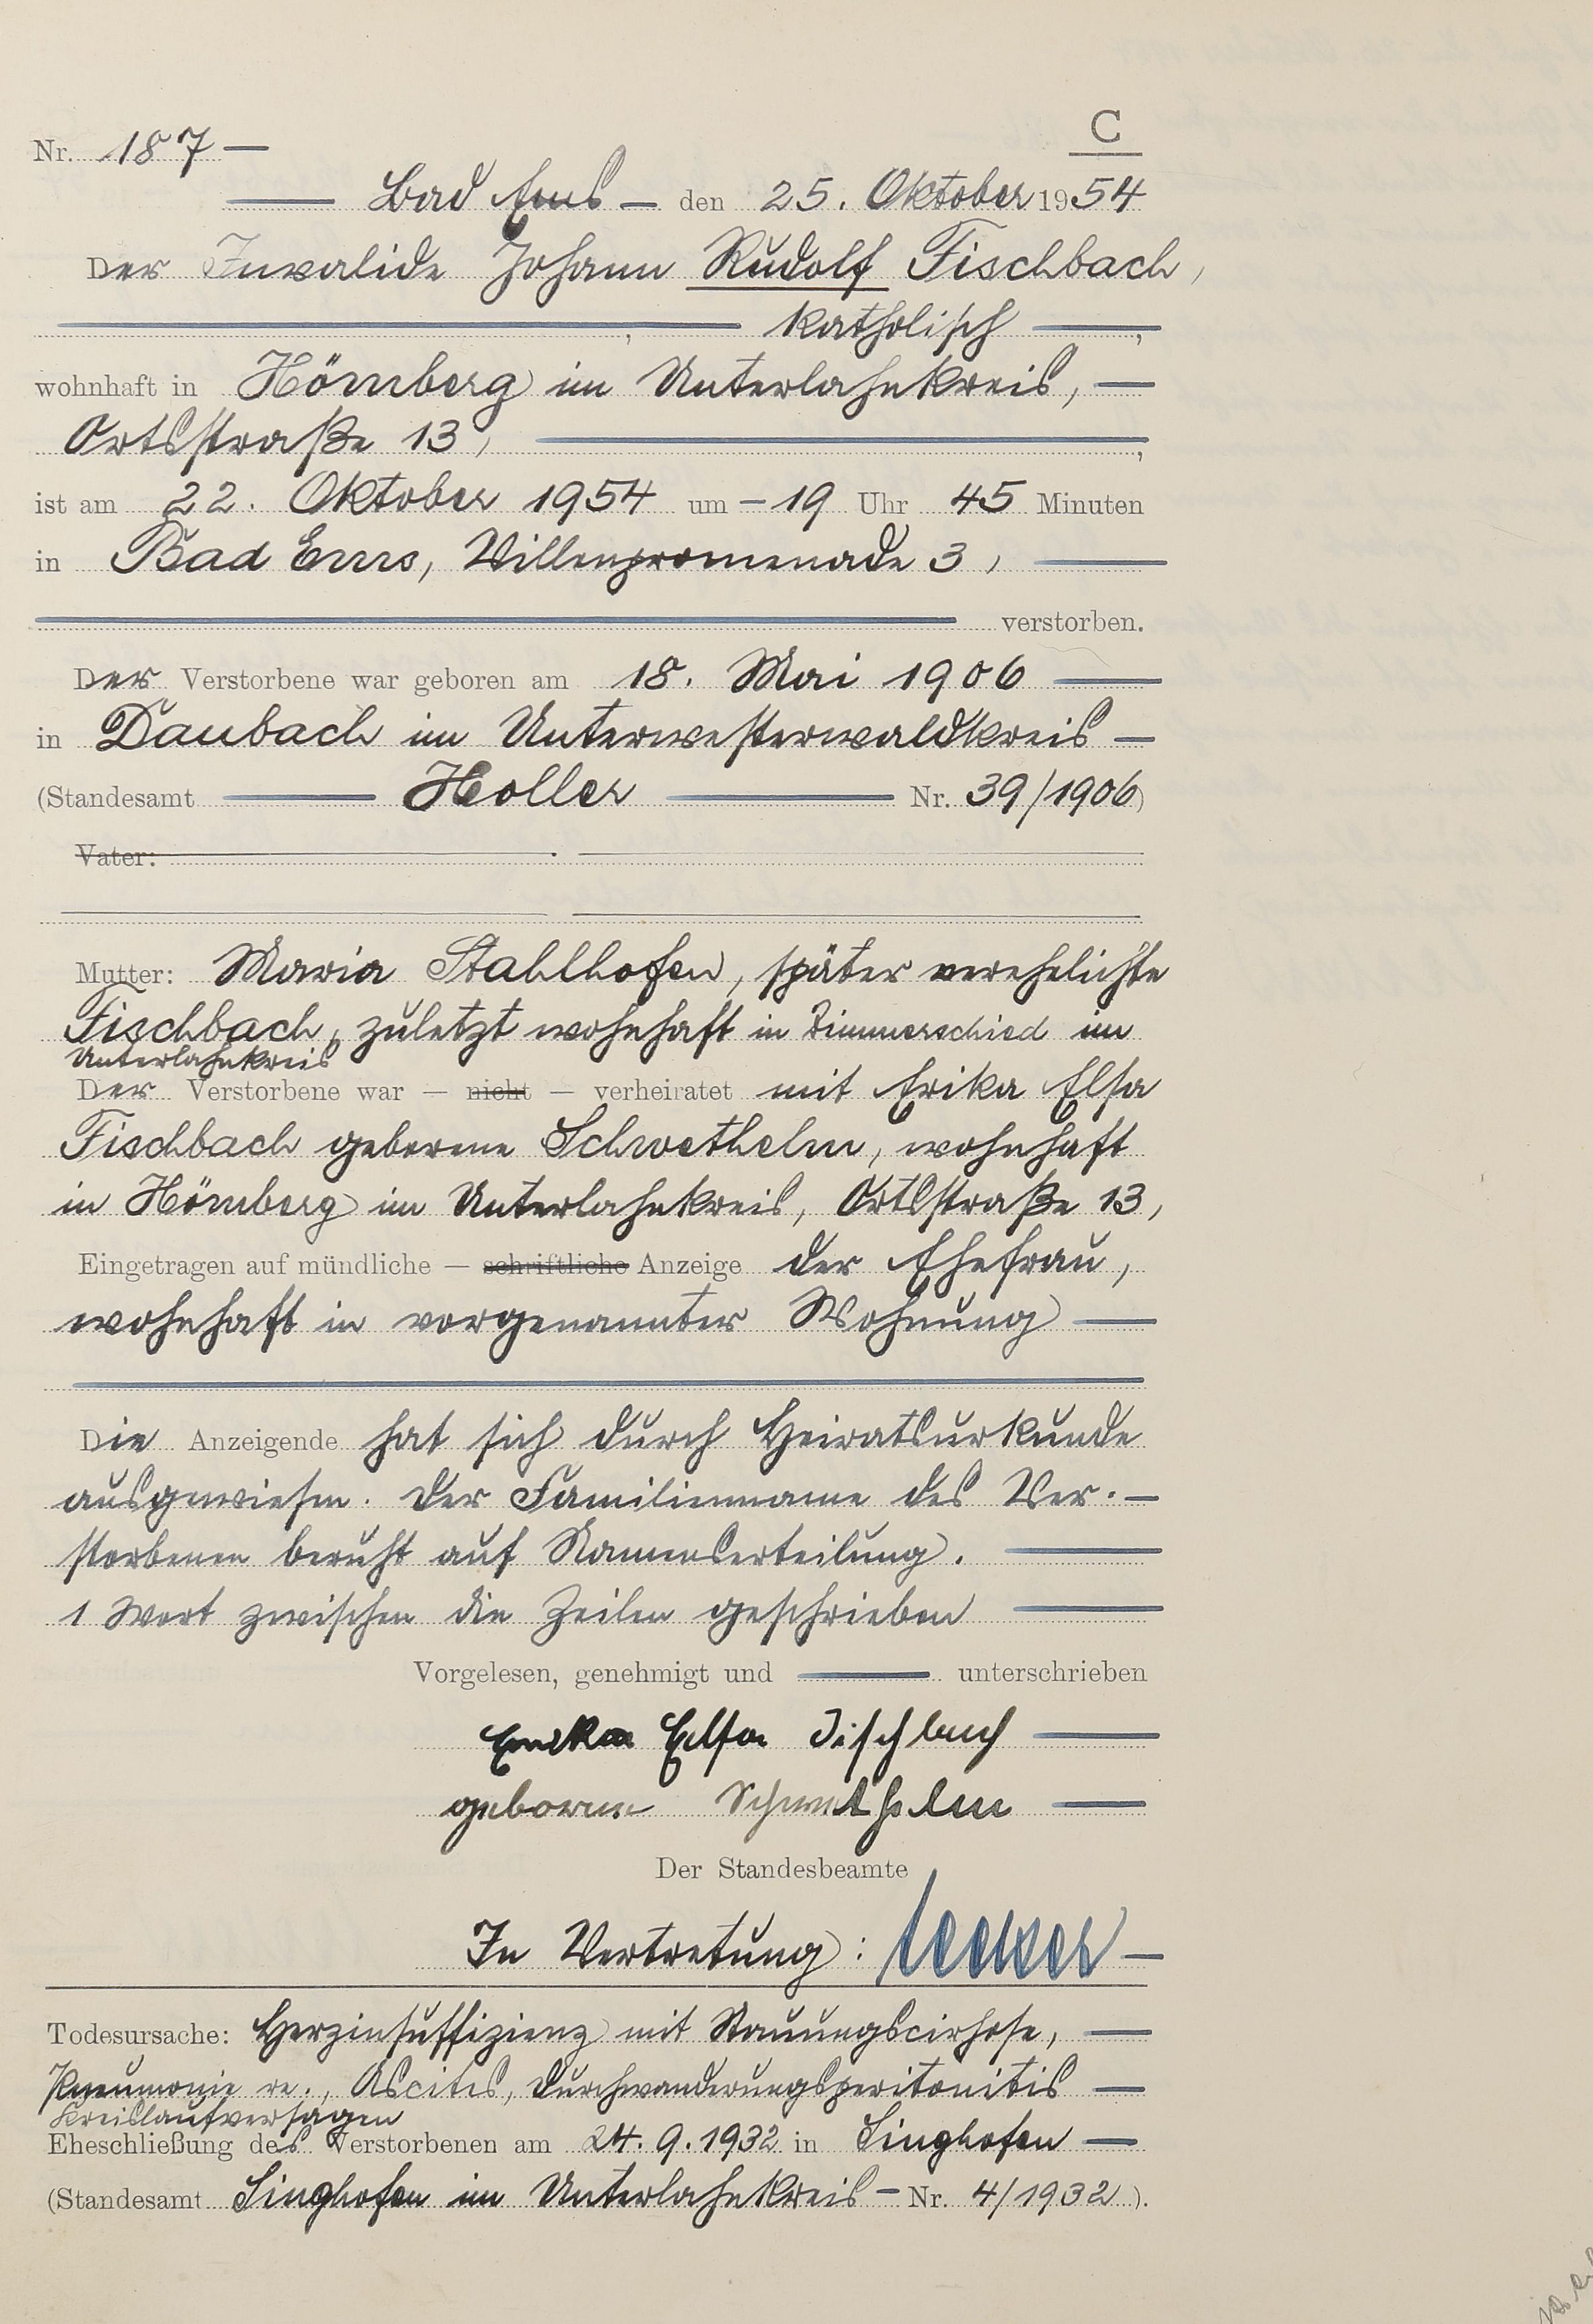 C
Nr. 187 —
— Bad Ems — den 25. Oktober 1954
Der Invalide Johann Rudolf Fischbach,
—, — katholisch —,
wohnhaft in Hömberg im Unterlahnkreis, —
Ortsstraße 13, —,
ist am 22. Oktober 1954 um — 19 Uhr 45 Minuten
in Bad Ems, Villenpromenade 3, —
— verstorben.
Der Verstorbene war geboren am 18. Mai 1906 —
in Daubach im Unterwesterwaldkreis —
(Standesamt — Holler — Nr. 39/1906)
Vater:
Mutter: Maria Stahlhofen, später verehelichte
Fischbach, zuletzt wohnhaft in Zimmerschied im
Unterlahnkreis
Der Verstorbene war — nicht — verheiratet mit Erika Elsa
Fischbach geborene Schwethelm, wohnhaft
in Hömberg im Unterlahnkreis, Ortsstraße 13,
Eingetragen auf mündliche — schriftliche Anzeige der Ehefrau,
wohnhaft in vorgenannter Wohnung —
Die Anzeigende hat sich durch Heiratsurkunde
ausgewiesen. Der Familienname des Ver. —
storbenen beruht auf Namenserteilung. —
1 Wort zwischen die Zeilen geschrieben —
Vorgelesen, genehmigt und — unterschrieben
Erika Elsa Fischbach —
geborene Schwethelm —
Der Standesbeamte
In Vertretung: —
Todesursache: Herzinsuffizienz mit Stauungscirhose, —
Pneumonie re., Ascites, Durchwanderungsperitonitis —
Kreislaufversagen
Eheschließung des Verstorbenen am 24. 9. 1932 in Singhofen —
(Standesamt Singhofen im Unterlahnkreis — Nr. 4/1932).